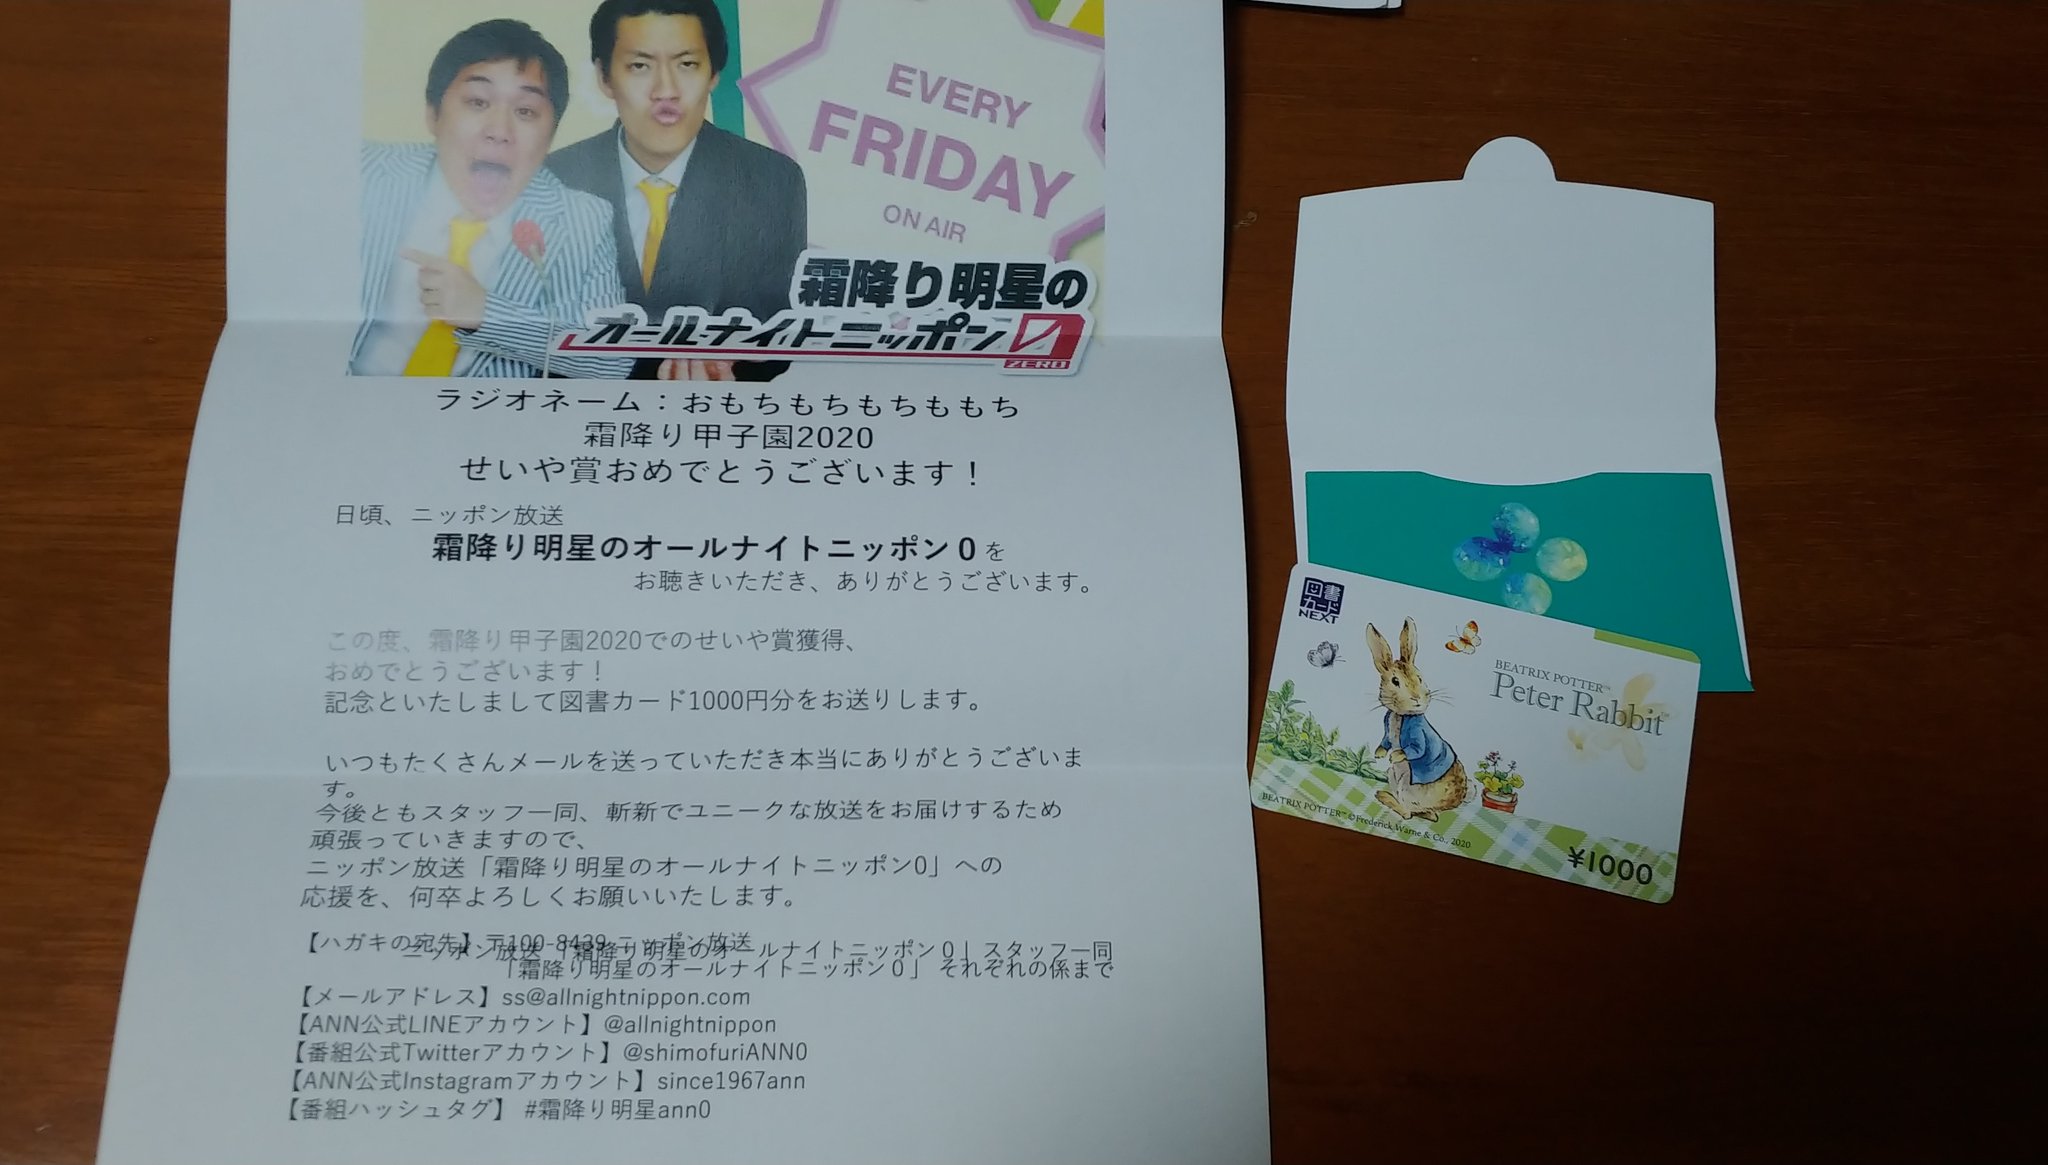 EVERY
FRIDAY
ON AIR
霜降り明星の
オールナイトニッポン0
ZERO
ラジオネーム：おもちもちもちももち
霜降り甲子園2020
せいや賞おめでとうございます！
日頃、ニッポン放送
霜降り明星のオールナイトニッポン０を
お聴きいただき、ありがとうございます。
この度、霜降り甲子園2020でのせいや賞獲得、
おめでとうございます！
記念といたしまして図書カード1000円分をお送りします。
いつもたくさんメールを送っていただき本当にありがとうございま
す。
今後ともスタッフ一同、斬新でユニークな放送をお届けするため
頑張っていきますので、
ニッポン放送「霜降り明星のオールナイトニッポン0」への
応援を、何卒よろしくお願いいたします。
【ハガキの宛先】〒100-8439 ニッポン放送
ニッポン放送「霜降り明星のオールナイトニッポン０」スタッフ一同
「霜降り明星のオールナイトニッポン０」 それぞれの係まで
【メールアドレス】ss@allnightnippon.com
【ANN公式LINEアカウント】@allnightnippon
【番組公式Twitterアカウント】@shimofuriANN0
【ANN公式Instagramアカウント】since1967ann
【番組ハッシュタグ】 #霜降り明星ann0
図書
カード
NEXT
BEATRIX POTTER™
Peter Rabbit™
BEATRIX POTTER™ ©Frederick Warne & Co., 2020
¥1000